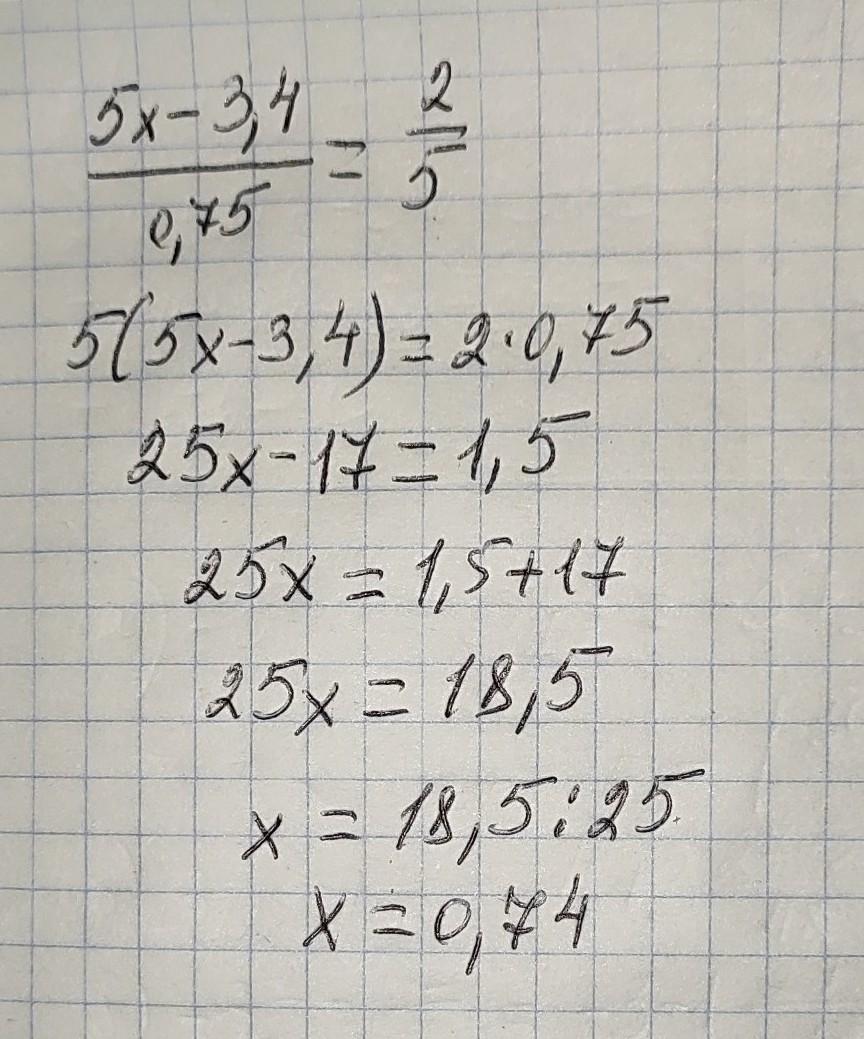 (5x-3,4)/0,75 = 2/5
5(5x-3,4)=2·0,75
25x-17=1,5
25x=1,5+17
25x=18,5
x=18,5:25
x=0,74